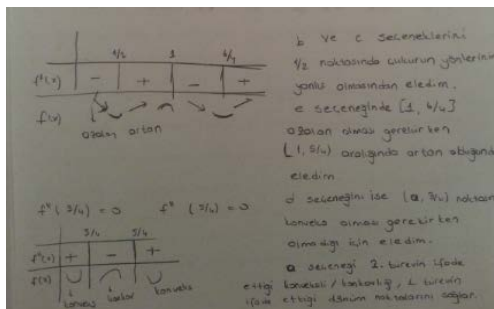 1/2 1 6/4
f'(x) - + - +
f(x)
azalan artan
f" (3/4) = 0 f" (5/4) = 0
3/4 5/4
f"(x) + - +
f(x)
konveks konkav konveks
b ve c seçeneklerini
1/2 noktasında çukurun yönlerinin
yanlış olmasından eledim.
e seçeneğinde [1, 6/4]
azalan olması gerekirken
(1, 5/4) aralığında artan olduğundan
eledim.
d seçeneğini ise (a, 3/4) noktası
konveks olması gerekirken
olmadığı için eledim.
a seçeneği 2. türevin ifade
ettiği konveksli / konkavlığı, 1. türevin
ifade ettiği dönüm noktalarını sağlar.